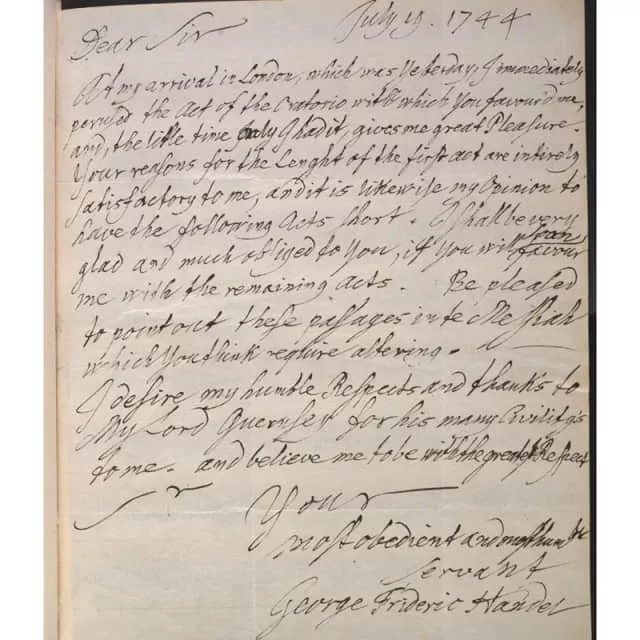 July 19. 1744
Dear Sir
At my arrival in London, which was Yesterday, I immediately
perused the Act of the Oratorio with which you favour'd me,
and, the little time only I had it, gives me great Pleasure.
Your reasons for the Lenght of the first act are intirely
satisfactory to me, and it is likewise my Opinion to
have the following Acts short. I shall be very
glad and much obliged to you, if you will soon favour
me with the remaining Acts. Be pleased
to point out these passages in the Messiah
which You think require altering.
I desire my humble Respects and thanks to
My Lord Guernsey for his many Civility's
to me. and believe me to be with the greatest Respect
Sr
Your
most obedient and most humble
Servant
George Frideric Handel